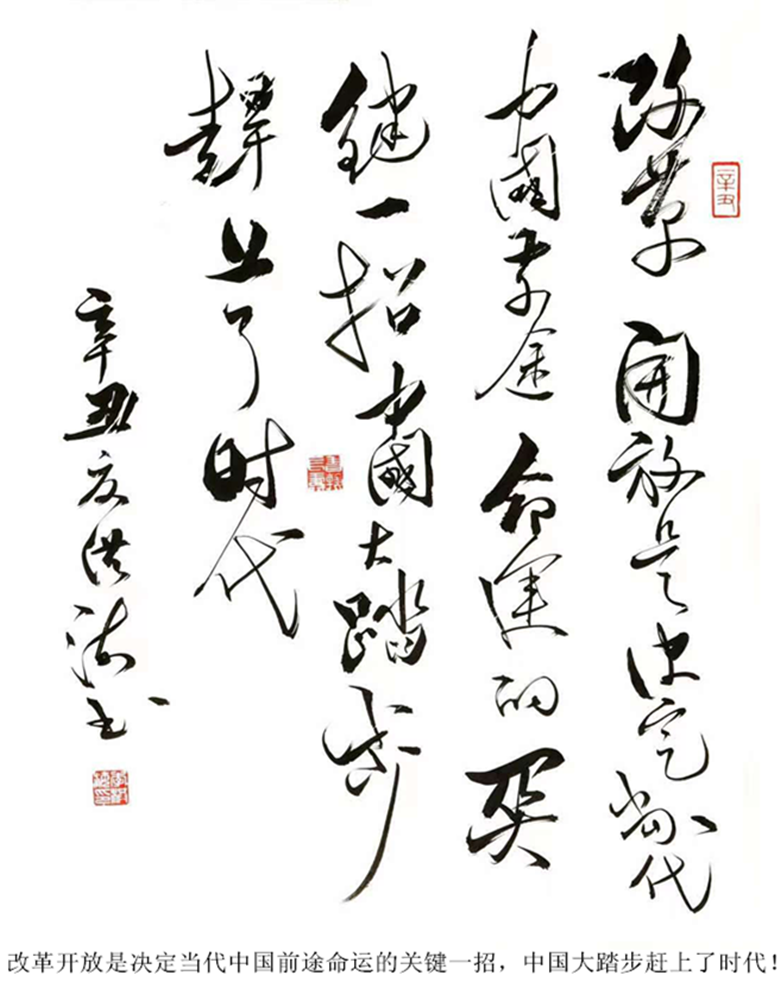 改革開放是决定當代
中國前途命運的関
键一招中國大踏步
趕上了时代
辛丑夏洪涛书
辛丑
改革开放是决定当代中国前途命运的关键一招，中国大踏步赶上了时代！